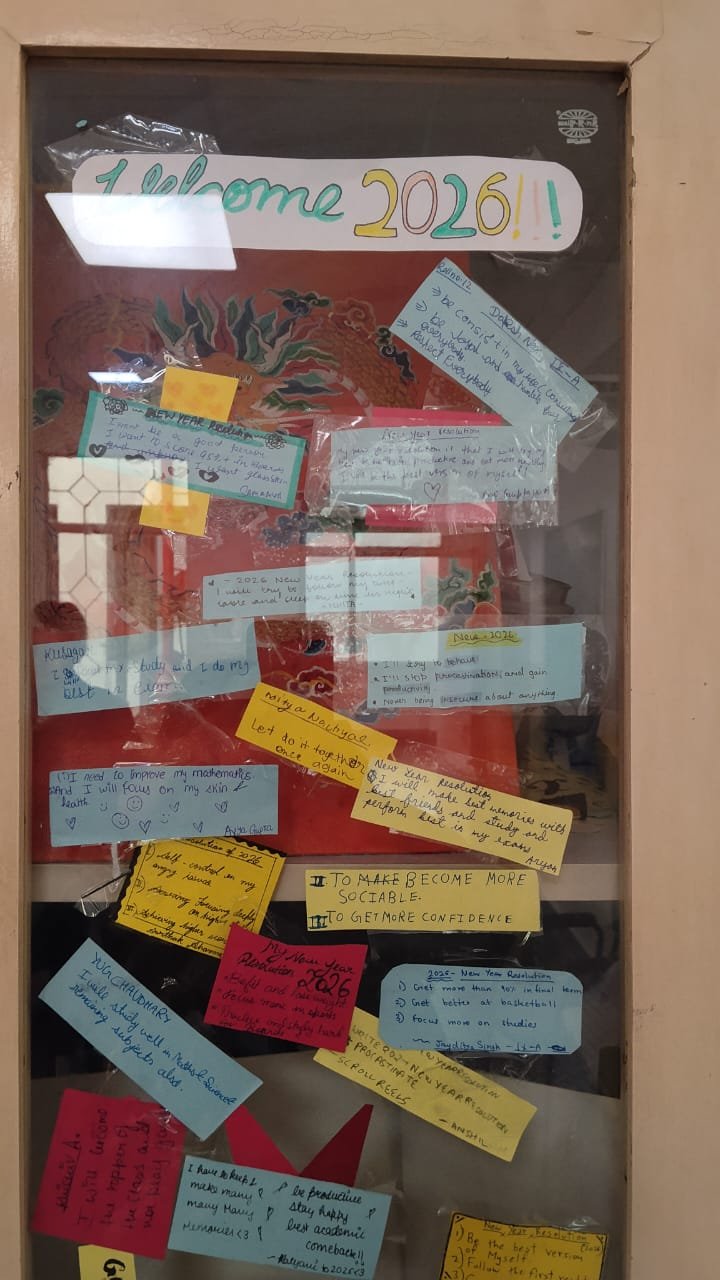 Welcome 2026!!!
Roll no. 12
IX-A
⇒ be consistent in my
⇒ be loyal and humble
everybody
⇒ Respect Everybody
NEW YEAR Resolution
I want be a good person
I want to score 95%+ in Boards
I want glass skin
New Year Resolution
My new year resolution is that I will try my
best to be more productive and eat more healthy.
I will be the best version of myself!
Gupta
- 2026 New Year Resolution -
I will try to follow my
and sleep on time
Kushagra
I my study and I do my
best in
New-2026
• I'll try to behave
• I'll stop procastination, and gain
productivity
• Never being insecure about anything.
Nautiyal
Let do it together
once again
New Year Resolution
I will make best memories with
best friends and study and
perform best in my exams
Aryan
(1) I need to improve my mathematics
And I will focus on my skin
health
Gupta
Resolution of 2026
1) Self-control on my
angry issues
focusing deeply
on
Achieving higher
Sharma
II TO MAKE BECOME MORE
SOCIABLE.
III TO GET MORE CONFIDENCE
My New Year
Resolution 2026
weight
• Focus more in sports
hard
for Boards
2026 - New Year Resolution
1) Get more than 90% in final term
2) Get better at basketball
3) Focus more on studies
~ Jayditya Singh - IX-A
YUG CHAUDHARY
I will study well in Maths & Science
remaining subjects also.
NEW YEAR RESOLUTION
WRITE 2027 NEW YEAR RESOLUTION
PROCASTINATE
SCROLL REELS
- ANSHIL
A.
I will become
the topper of
the class and
I have to keep
make many
many Many
Memories <3
be productive
stay happy
best academic
comeback!!
- Kalyani to 2026 <3
New Year Resolution
1) Be the best version
of Myself
2) Follow the first
3)